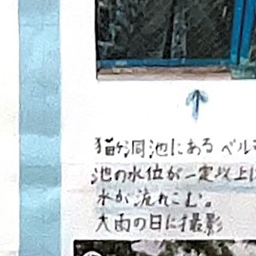 猫ヶ洞池にあるベルマ
池の水位が一定以上に
水が流れこむ。
大雨の日に撮影